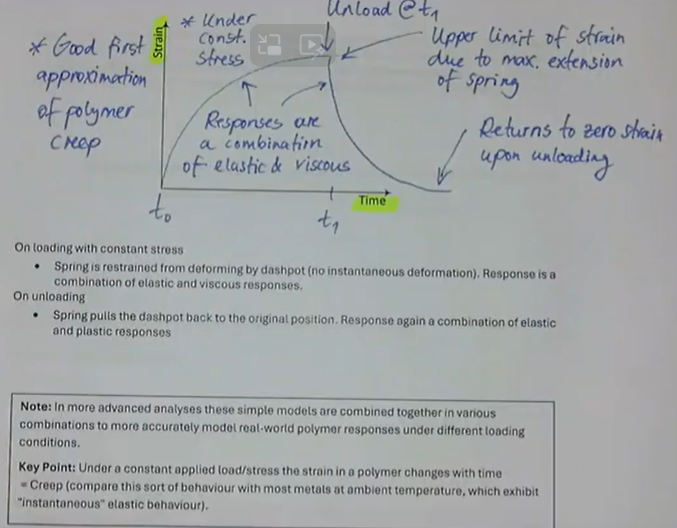 Unload @ t₁
* Under
const.
stress
Strain
* Good first
approximation
of polymer
creep
Upper limit of strain
due to max. extension
of spring
Responses are
a combination
of elastic & viscous
Returns to zero strain
upon unloading
t₀
t₁
Time
On loading with constant stress
• Spring is restrained from deforming by dashpot (no instantaneous deformation). Response is a
combination of elastic and viscous responses.
On unloading
• Spring pulls the dashpot back to the original position. Response again a combination of elastic
and plastic responses
Note: In more advanced analyses these simple models are combined together in various
combinations to more accurately model real-world polymer responses under different loading
conditions.
Key Point: Under a constant applied load/stress the strain in a polymer changes with time
= Creep (compare this sort of behaviour with most metals at ambient temperature, which exhibit
"instantaneous" elastic behaviour).